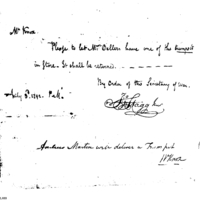 Mr Knox
Please to let Mr Oellers have one of the trumpets
in Store. It shall be returned
By Order of the Secretary of War.
July 5th 1792.
Jn Stagg Jr
Andrew Martin will deliver a Trumpet
W Knox